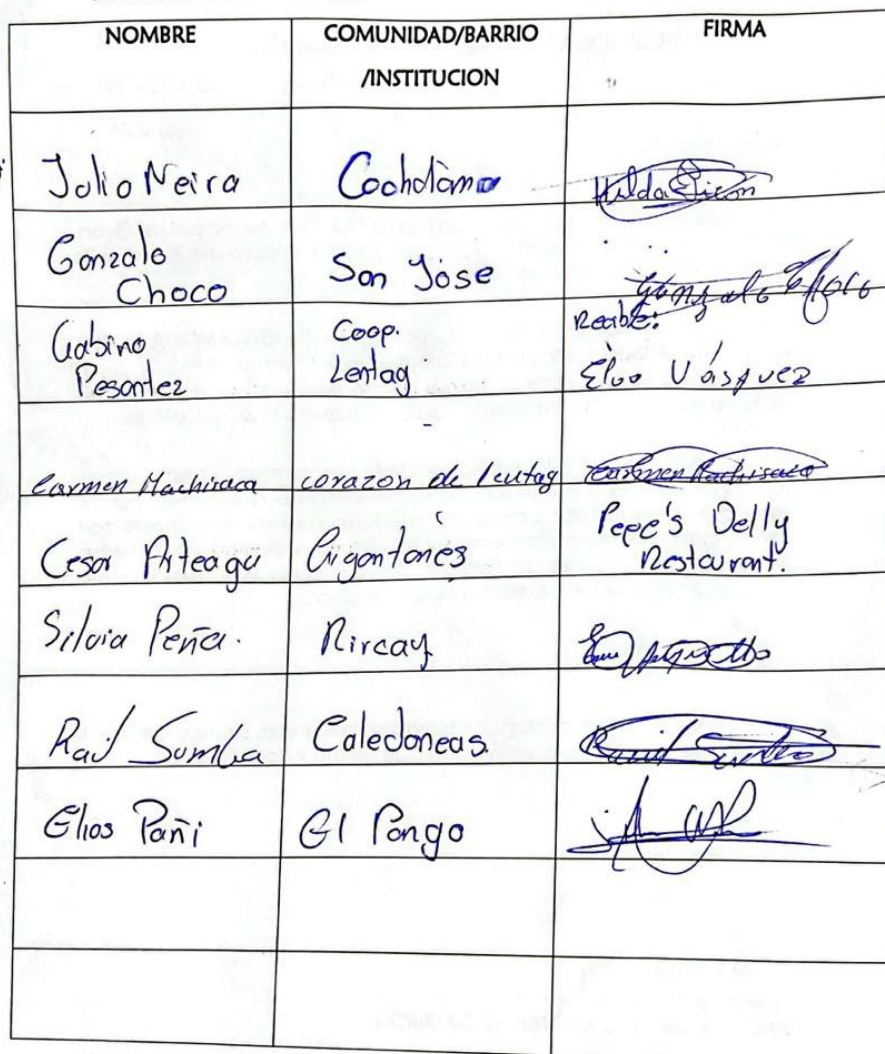 NOMBRE
COMUNIDAD/BARRIO
/INSTITUCION
FIRMA
Julio Neira
Cochaloma
Hilda
Gonzalo
Choco
San Jose
Gonzalo Choco
Gabino
Pesantez
Coop.
Lentag
Recibe:
Elva Vásquez
Carmen Machisaca
corazon de Lentag
Carmen Machisaca
Cesar Arteaga
Gigantones
Pepe's Delly
Restaurant.
Silvia Peña.
Rircay
Raúl Sumba
Caledoneas.
Elios Pañi
El Pongo